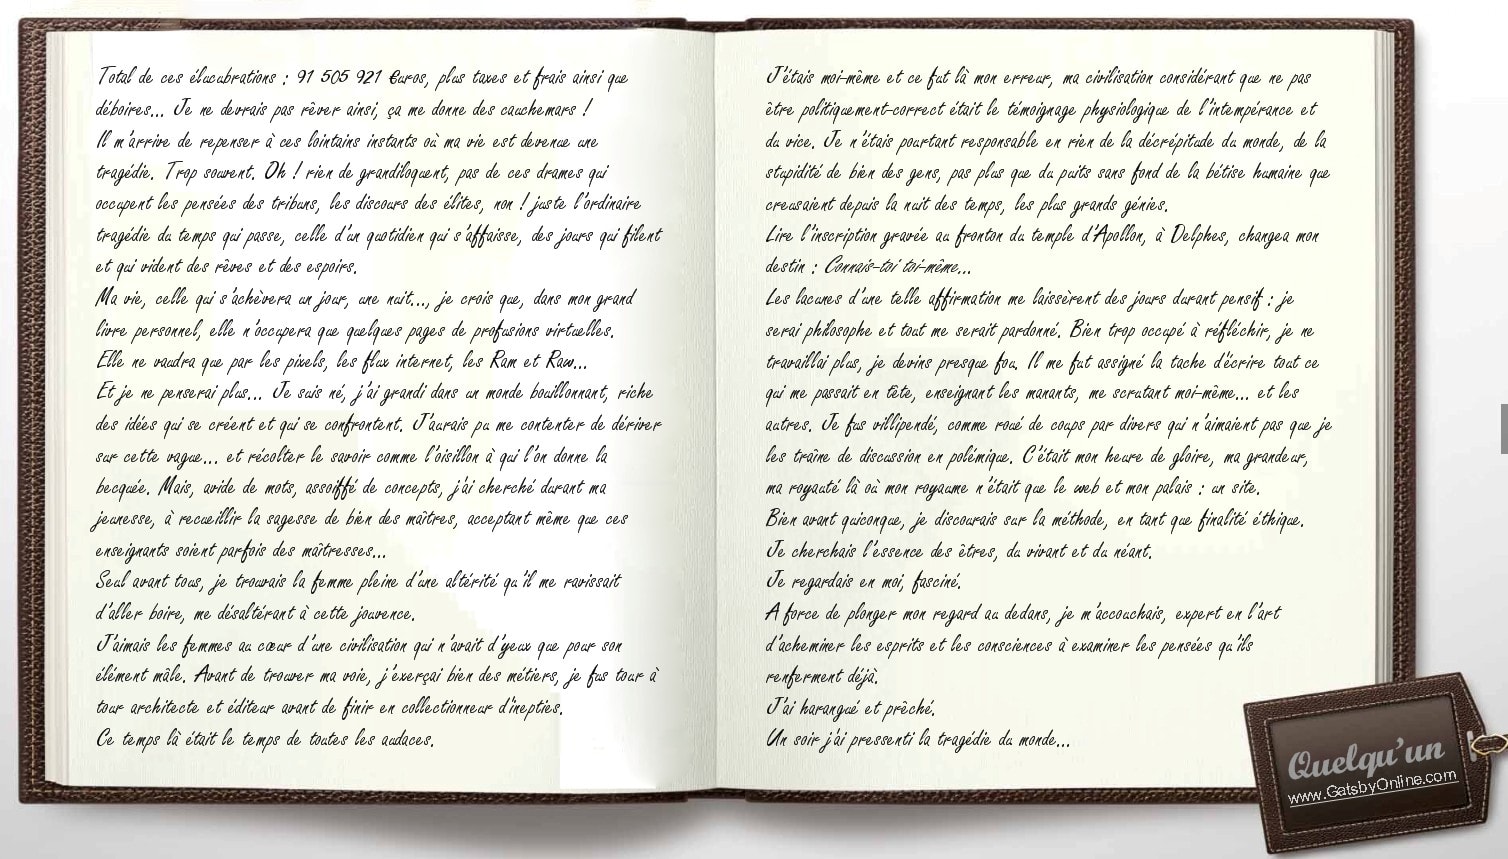 Total de ces élucubrations : 91 505 921 €uros, plus taxes et frais ainsi que
déboires... Je ne devrais pas rêver ainsi, ça me donne des cauchemars !
Il m'arrive de repenser à ces lointains instants où ma vie est devenue une
tragédie. Trop souvent. Oh ! rien de grandiloquent, pas de ces drames qui
occupent les pensées des tribuns, les discours des élites, non ! juste l'ordinaire
tragédie du temps qui passe, celle d'un quotidien qui s'affaisse, des jours qui filent
et qui vident des rêves et des espoirs.
Ma vie, celle qui s'achèvera un jour, une nuit..., je crois que, dans mon grand
livre personnel, elle n'occupera que quelques pages de profusions virtuelles.
Elle ne vaudra que par les pixels, les flux internet, les Ram et Raw...
Et je ne penserai plus... Je suis né, j'ai grandi dans un monde bouillonnant, riche
des idées qui se créent et qui se confrontent. J'aurais pu me contenter de dériver
sur cette vague... et récolter le savoir comme l'oisillon à qui l'on donne la
becquée. Mais, avide de mots, assoiffé de concepts, j'ai cherché durant ma
jeunesse, à recueillir la sagesse de bien des maîtres, acceptant même que ces
enseignants soient parfois des maîtresses...
Seul avant tous, je trouvais la femme pleine d'une altérité qu'il me ravissait
d'aller boire, me désaltérant à cette jouvence.
J'aimais les femmes au cœur d'une civilisation qui n'avait d'yeux que pour son
élément mâle. Avant de trouver ma voie, j'exerçai bien des métiers, je fus tour à
tour architecte et éditeur avant de finir en collectionneur d'inepties.
Ce temps là était le temps de toutes les audaces.
J'étais moi-même et ce fut là mon erreur, ma civilisation considérant que ne pas
être politiquement-correct était le témoignage physiologique de l'intempérance et
du vice. Je n'étais pourtant responsable en rien de la décrépitude du monde, de la
stupidité de bien des gens, pas plus que du puits sans fond de la bétise humaine que
creusaient depuis la nuit des temps, les plus grands génies.
Lire l'inscription gravée au fronton du temple d'Apollon, à Delphes, changea mon
destin : Connais-toi toi-même...
Les lacunes d'une telle affirmation me laissèrent des jours durant pensif : je
serai philosophe et tout me serait pardonné. Bien trop occupé à réfléchir, je ne
travaillai plus, je devins presque fou. Il me fut assigné la tache d'écrire tout ce
qui me passait en tête, enseignant les manants, me scrutant moi-même... et les
autres. Je fus villipendé, comme roué de coups par divers qui n'aimaient pas que je
les traîne de discussion en polémique. C'était mon heure de gloire, ma grandeur,
ma royauté là où mon royaume n'était que le web et mon palais : un site.
Bien avant quiconque, je discourais sur la méthode, en tant que finalité éthique.
Je cherchais l'essence des êtres, du vivant et du néant.
Je regardais en moi, fasciné.
A force de plonger mon regard au dedans, je m'accouchais, expert en l'art
d'acheminer les esprits et les consciences à examiner les pensées qu'ils
renferment déjà.
J'ai harangué et prêché.
Un soir j'ai pressenti la tragédie du monde...
Quelqu'un !
www.GatsbyOnline.com